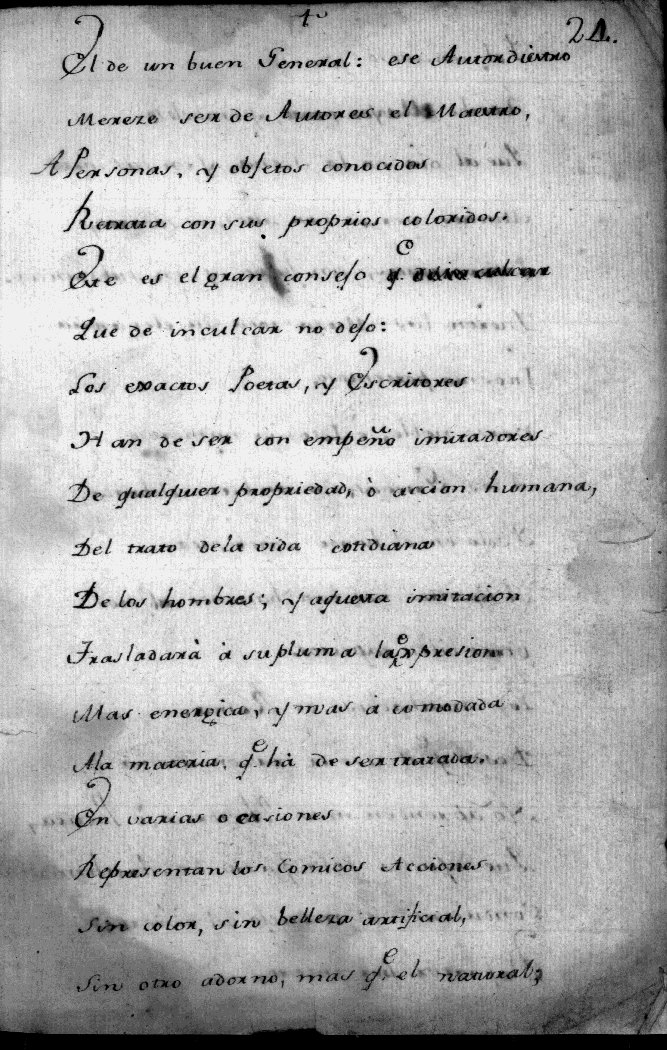 24.
El de un buen General: ese Autor diestro
Mereze ser de Autores el Maestro,
A Personas, y objetos conocidos
Retrata con sus proprios coloridos.
Este es el gran consejo
Que de inculcar no dejo:
Los exactos Poetas, y Escritores
Han de ser con empeño imitadores
De qualquier propriedad, ò accion humana,
Del trato dela vida cotidiana
De los hombres; y aquesta imitacion
Trasladarà à su pluma la expresion
Mas energica, y mas acomodada
Ala materia q.e hà de ser tratada.
En varias ocasiones
Representan los Comicos Acciones
Sin color, sin belleza artificial,
Sin otro adorno, mas q.e el natural;